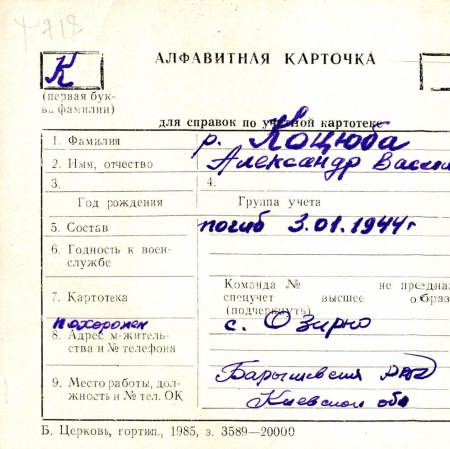 Т-718
АЛФАВИТНАЯ КАРТОЧКА
К
(первая бук-
ва фамилии)
для справок по учетной картотеке
1. Фамилия р. Коцюба
2. Имя, отчество Александр Васил
3. 4.
Год рождения Группа учета
5. Состав погиб 3.01.1944г
6. Годность к воен-
службе
Команда № не предназ
7. Картотека спецучет высшее образ
(подчеркнуть)
похоронен с. Озирно
8. Адрес м-житель-
ства и № телефона
Барышевский
9. Место работы, дол- Киевской обл
жность и № тел. ОК
Б. Церковь, гортип., 1985, з. 3589—20000